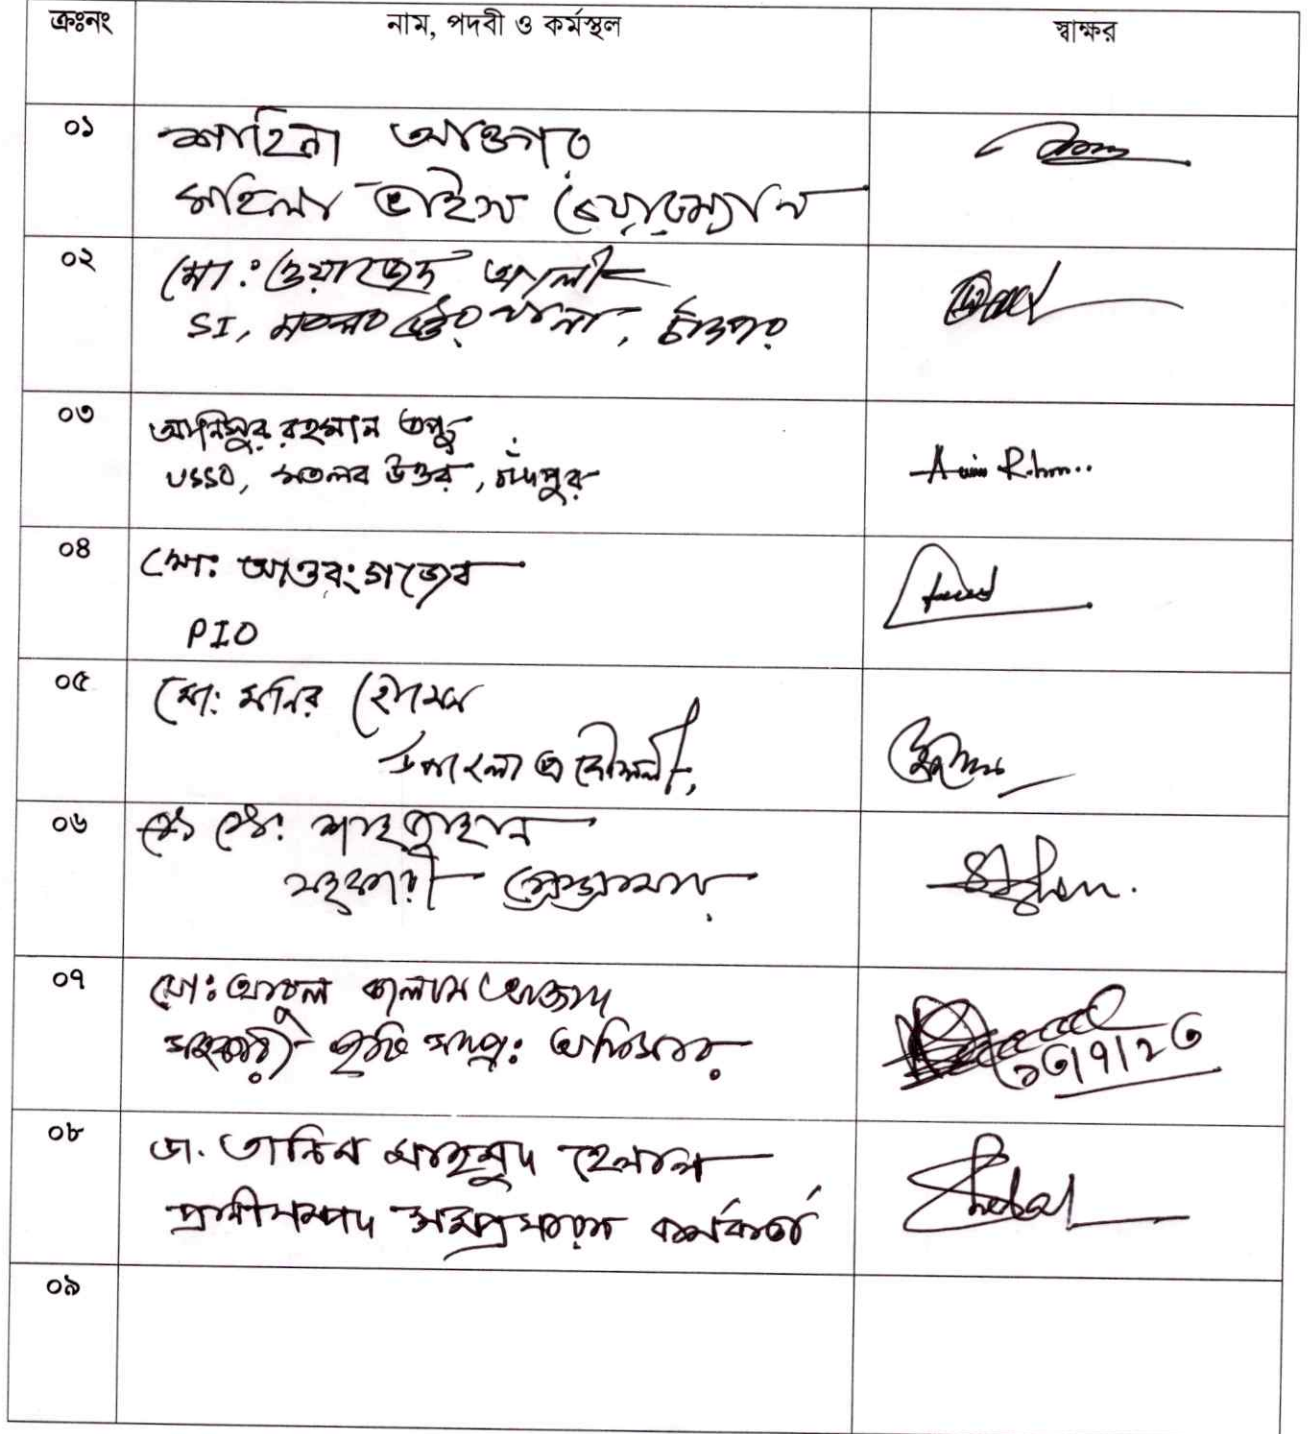 ক্রঃনং নাম, পদবী ও কর্মস্থল স্বাক্ষর
০১ শাহিনা আক্তার
মহিলা ভাইস চেয়ারম্যান
০২ মো: ওয়াজেদ আলী
SI, মতলব উত্তর থানা, চাঁদপুর
০৩ আনিসুর রহমান তপু
USSO, মতলব উত্তর, চাঁদপুর
০৪ মো: আওরংগজেব
PIO
০৫ মো: মনির হোসেন
উপজেলা প্রকৌশলী,
০৬ মো: শাহজাহান
সহকারী প্রোগ্রামার
০৭ মো: আবুল কালাম আজাদ
সহকারী কৃষি সম্প্র: অফিসার
১৩/৭/২৩
০৮ ডা. তানিম মাহমুদ হেলাল
প্রানীসম্পদ সম্প্রসারন কর্মকর্তা
০৯